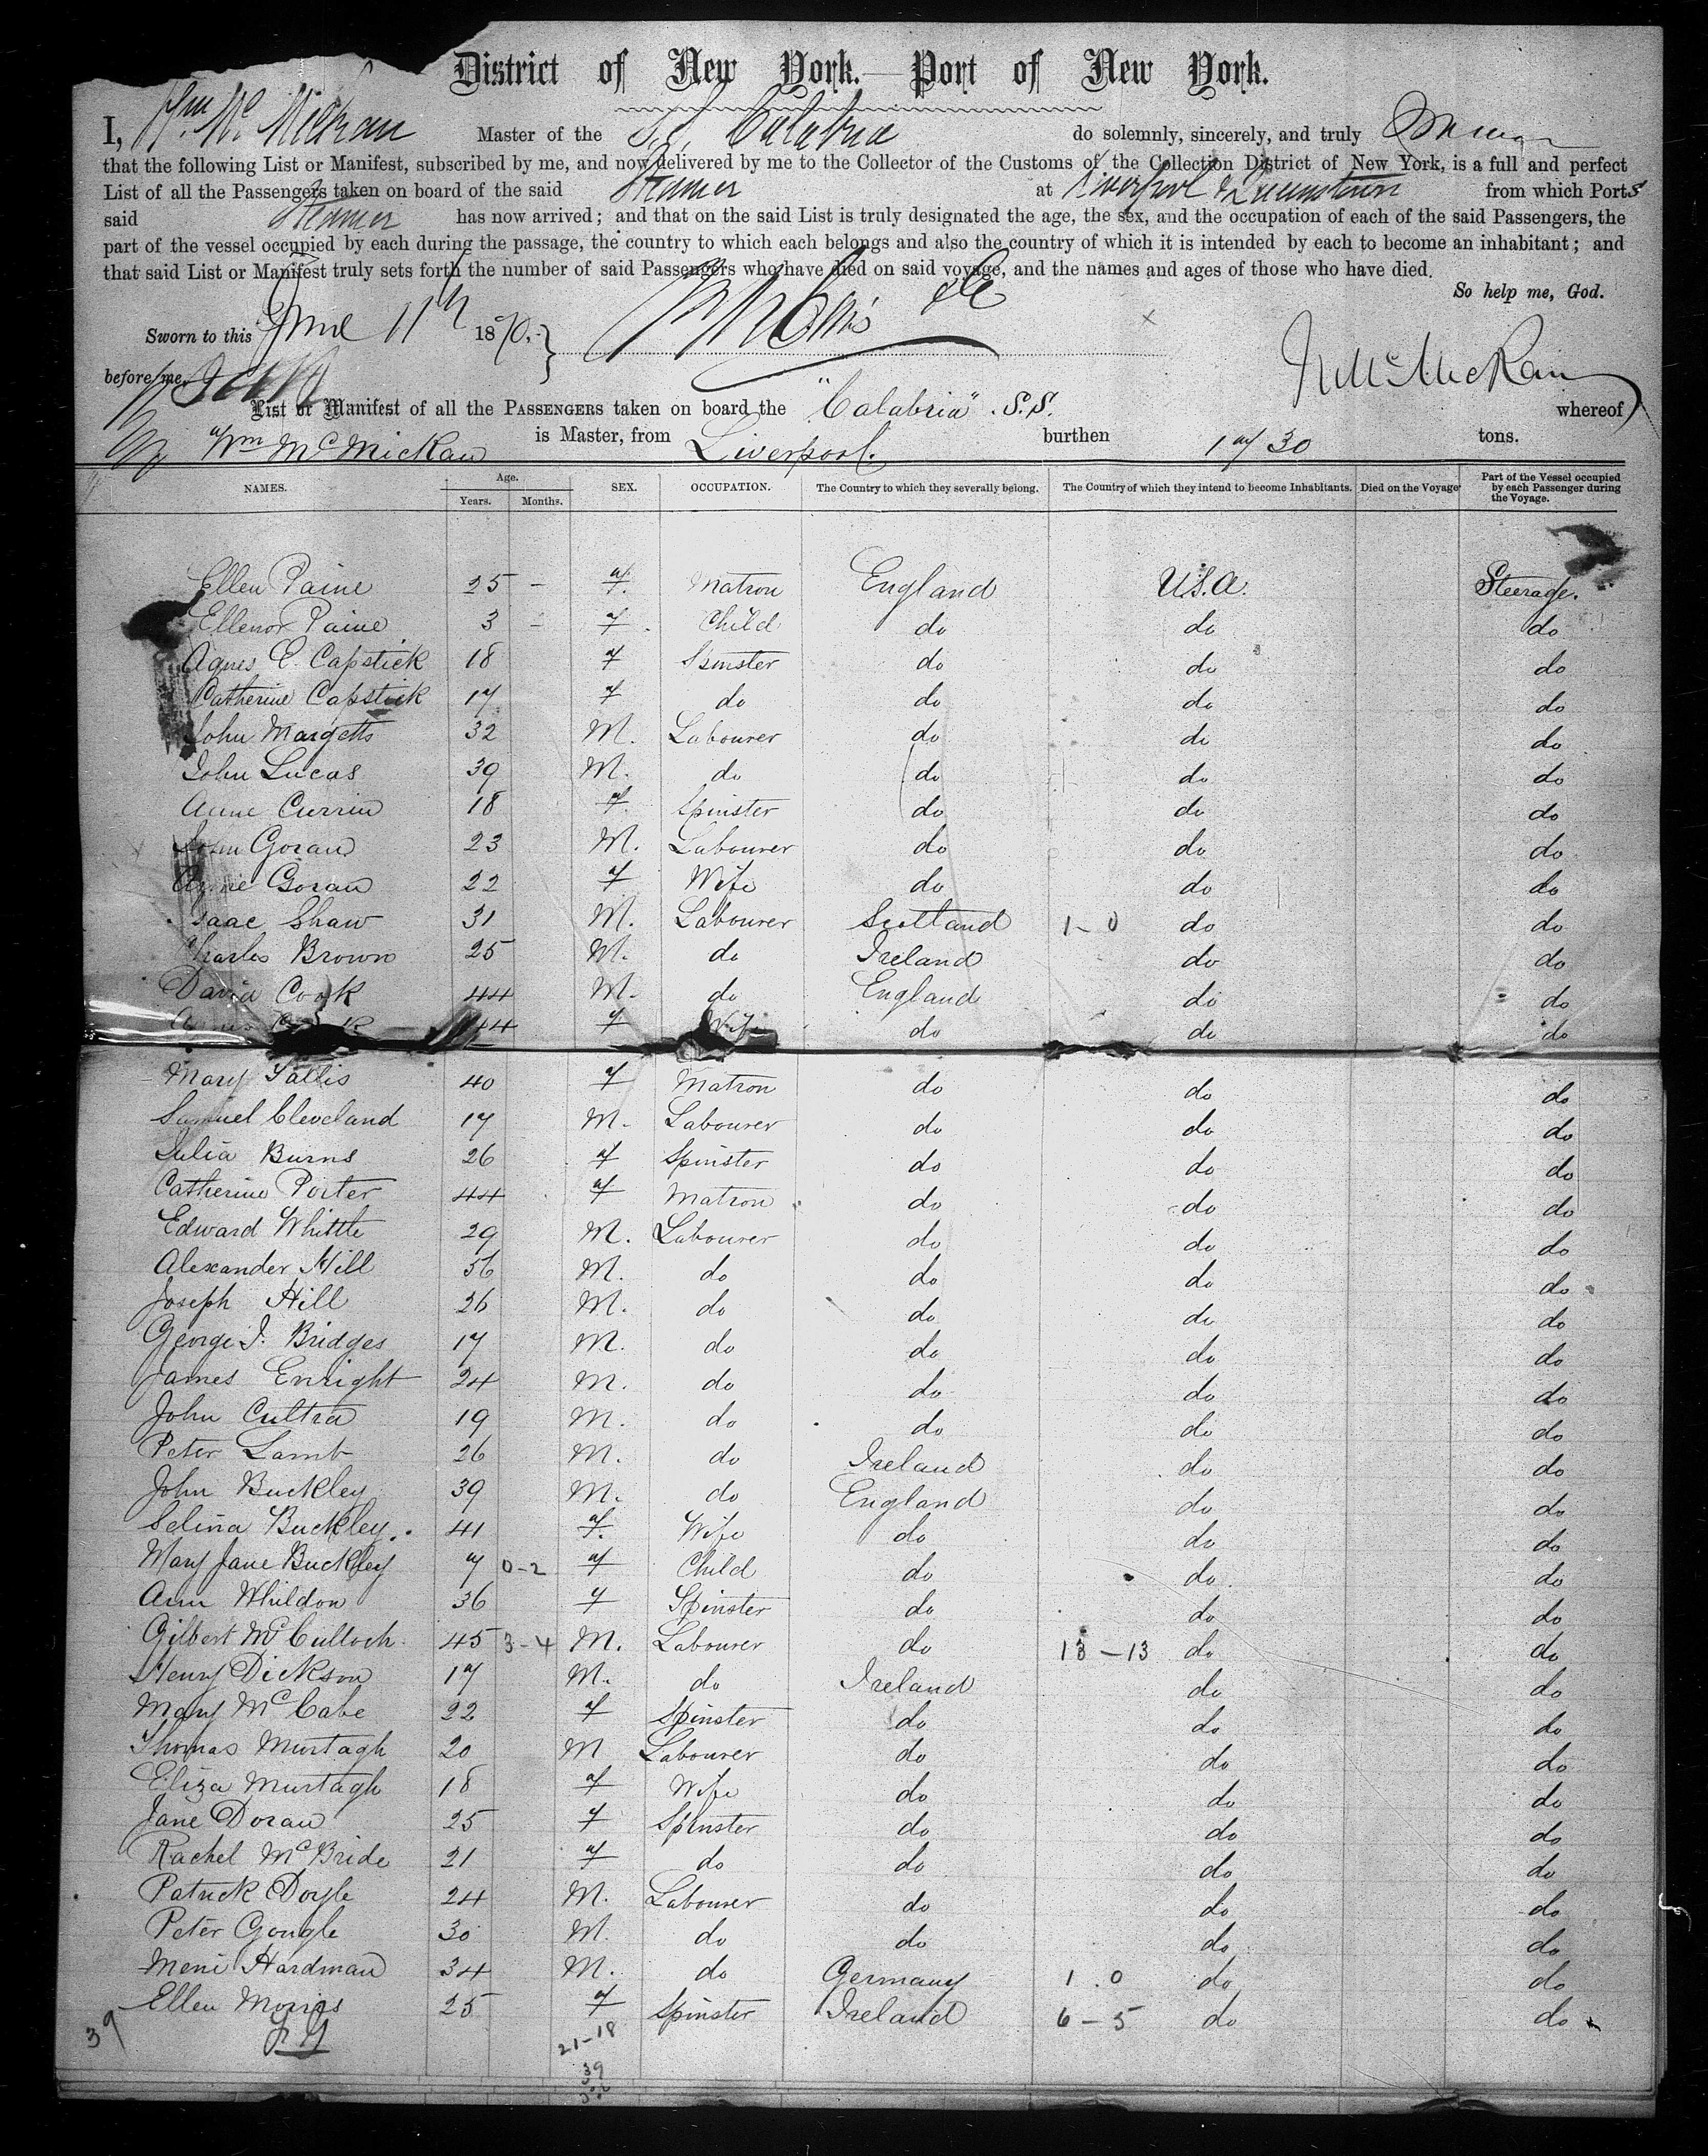 District of New York.—Port of New York.
I, Wm Mc Mickan Master of the S.S. Calabria do solemnly, sincerely, and truly Swear
that the following List or Manifest, subscribed by me, and now delivered by me to the Collector of the Customs of the Collection District of New York, is a full and perfect
List of all the Passengers taken on board of the said Steamer at Liverpool & Queenstown from which Ports
said Steamer has now arrived; and that on the said List is truly designated the age, the sex, and the occupation of each of the said Passengers, the
part of the vessel occupied by each during the passage, the country to which each belongs and also the country of which it is intended by each to become an inhabitant; and
that said List or Manifest truly sets forth the number of said Passengers who have died on said voyage, and the names and ages of those who have died.
So help me, God.
Sworn to this June 11th 1870.
before me,
W McMickan
List or Manifest of all the PASSENGERS taken on board the "Calabria" S.S. whereof
Wm McMickan is Master, from Liverpool. burthen 1730 tons.
NAMES. Age. Years. Months. SEX. OCCUPATION. The Country to which they severally belong. The Country of which they intend to become Inhabitants. Died on the Voyage Part of the Vessel occupied by each Passenger during the Voyage.
Ellen Paine 25 - F. Matron England U.S.A. Steerage.
Ellenor Paine 3 - F. Child do do do
Agnes E. Capstick 18 F Spinster do do do
Catherine Capstick 17 F do do do do
John Margetts 32 M. Labourer do do do
John Lucas 39 M. do do do do
Anne Currin 18 F. Spinster do do do
John Goran 23 M. Labourer do do do
Annie Goran 22 F Wife do do do
Isaac Shaw 31 M. Labourer Scotland 1-0 do do
Charles Brown 25 M. do Ireland do do
David Cook 44 M. do England do do
44 F Wife do do do
Mary Tallis 40 F Matron do do do
Samuel Cleveland 17 M. Labourer do do do
Julia Burns 26 F Spinster do do do
Catherine Porter 44 F Matron do do do
Edward Whittle 29 M. Labourer do do do
Alexander Hill 56 M. do do do do
Joseph Hill 26 M. do do do do
George J. Bridges 17 M. do do do do
James Enright 24 M. do do do do
John Cultra 19 M. do do do do
Peter Lamb 26 M. do Ireland do do
John Buckley 39 M. do England do do
Selina Buckley. 41 F. Wife do do do
Mary Jane Buckley 7 0-2 F Child do do do
Ann Whildon 36 F Spinster do do do
Gilbert McCulloch 45 3-4 M. Labourer do 13-13 do do
Henry Dickson 17 M. do Ireland do do
Mary McCabe 22 F Spinster do do do
Thomas Murtagh 20 M Labourer do do do
Eliza Murtagh 18 F Wife do do do
Jane Doran 25 F Spinster do do do
Rachel McBride 21 F do do do do
Patrick Doyle 24 M. Labourer do do do
Peter Gongle 30 M. do do do do
Meni Hardman 34 M. do Germany 1.0 do do
Ellen Morris 25 F Spinster Ireland 6-5 do do
39 21-18
39